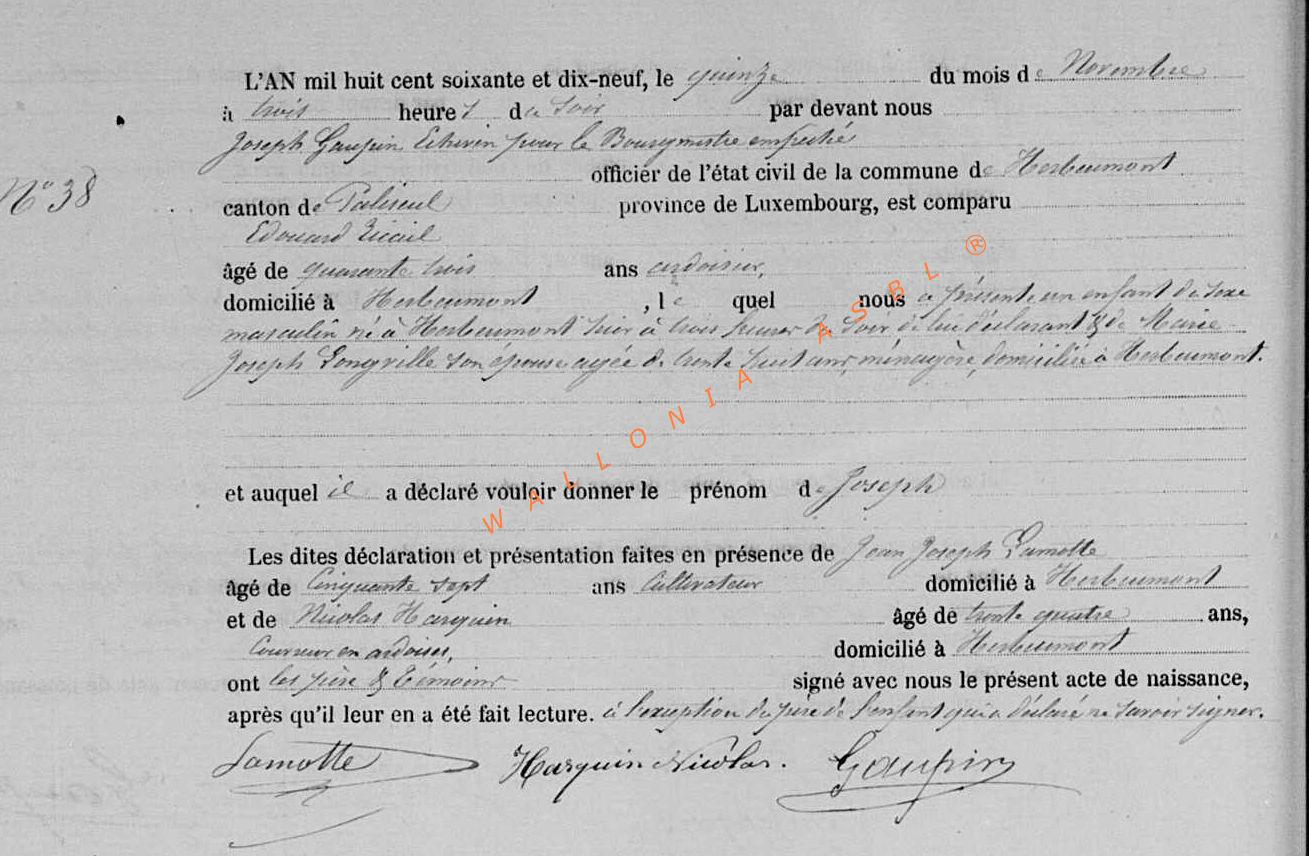 L'AN mil huit cent soixante et dix-neuf, le quinze du mois de Novembre
à trois heures du soir par devant nous
Joseph Gaupin Echevin pour le Bourgmestre empêché
officier de l'état civil de la commune de Herbeumont
N° 38
canton de Paliseul province de Luxembourg, est comparu
Edouard
âgé de quarante trois ans ardoisier,
domicilié à Herbeumont, le quel nous a présenté un enfant du sexe
masculin né à Herbeumont hier à trois heures du soir de lui déclarant & de Marie
Joseph Longville son épouse agée de trente huit ans, ménagère, domiciliée à Herbeumont.
et auquel il a déclaré vouloir donner le prénom de Joseph
Les dites déclaration et présentation faites en présence de Jean Joseph Lamotte
âgé de Cinquante sept ans Cultivateur domicilié à Herbeumont
et de Nicolas Harquin âgé de trente quatre ans,
Couvreur en ardoises, domicilié à Herbeumont
ont les père & témoins signé avec nous le présent acte de naissance,
après qu'il leur en a été fait lecture. à l'exception du père de l'enfant qui a déclaré ne savoir signer.
Lamotte Harquin Nicolas. Gaupin
WALLONIA ASBL ®